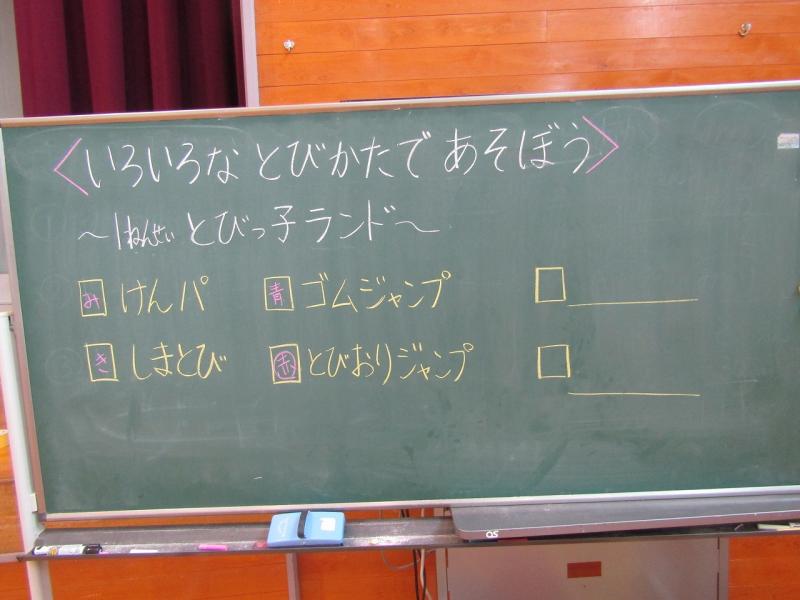 <いろいろな とびかたで あそぼう>
～1ねんせい とびっ子ランド～
み けんパ 青 ゴムジャンプ
き しまとび 赤 とびおりジャンプ